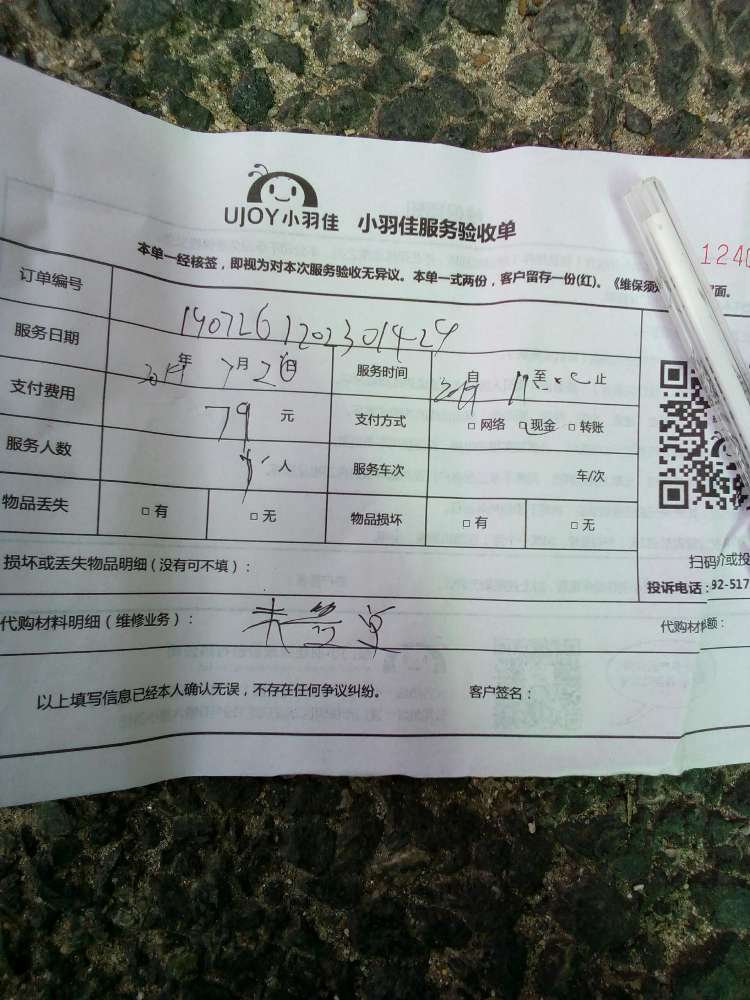 UJOY小羽佳 小羽佳服务验收单
1240
本单一经核签，即视为对本次服务验收无异议。本单一式两份，客户留存一份(红)。《维保须 面。
订单编号
服务日期 年 7月2日 服务时间 自 至 止
支付费用 79 元 支付方式 □网络 □现金 □转账
服务人数 人 服务车次 车/次
物品丢失 □有 □无 物品损坏 □有 □无
损坏或丢失物品明细（没有可不填）： 扫码 或投
投诉电话：92-517
代购材料明细（维修业务）： 代购材 额：
以上填写信息已经本人确认无误，不存在任何争议纠纷。 客户签名：